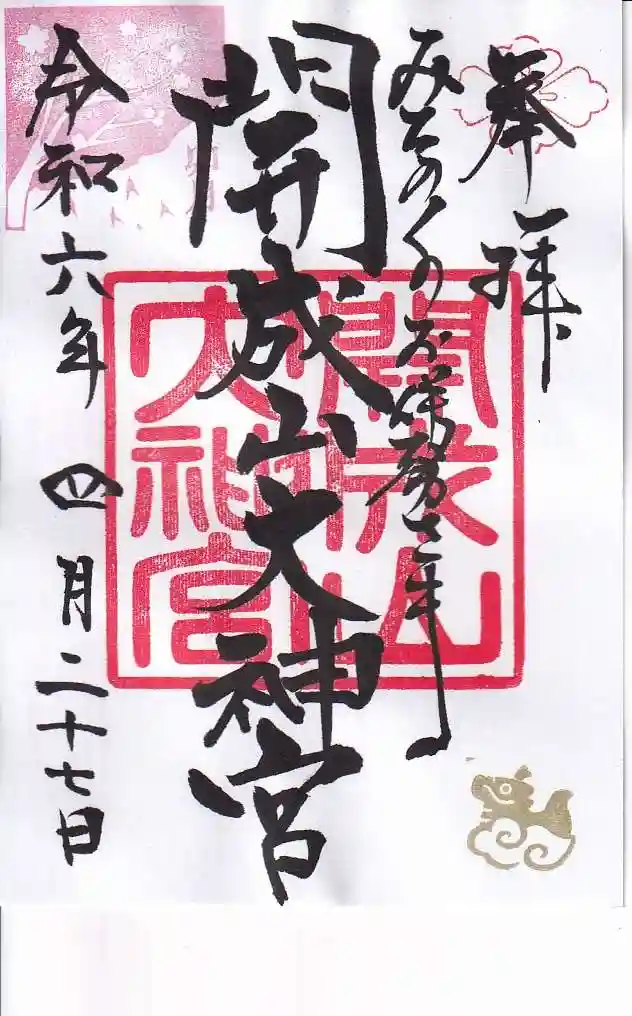 奉拝
みちのくのお伊勢さま
開成山大神宮
開成山
大神宮
令和六年四月二十七日